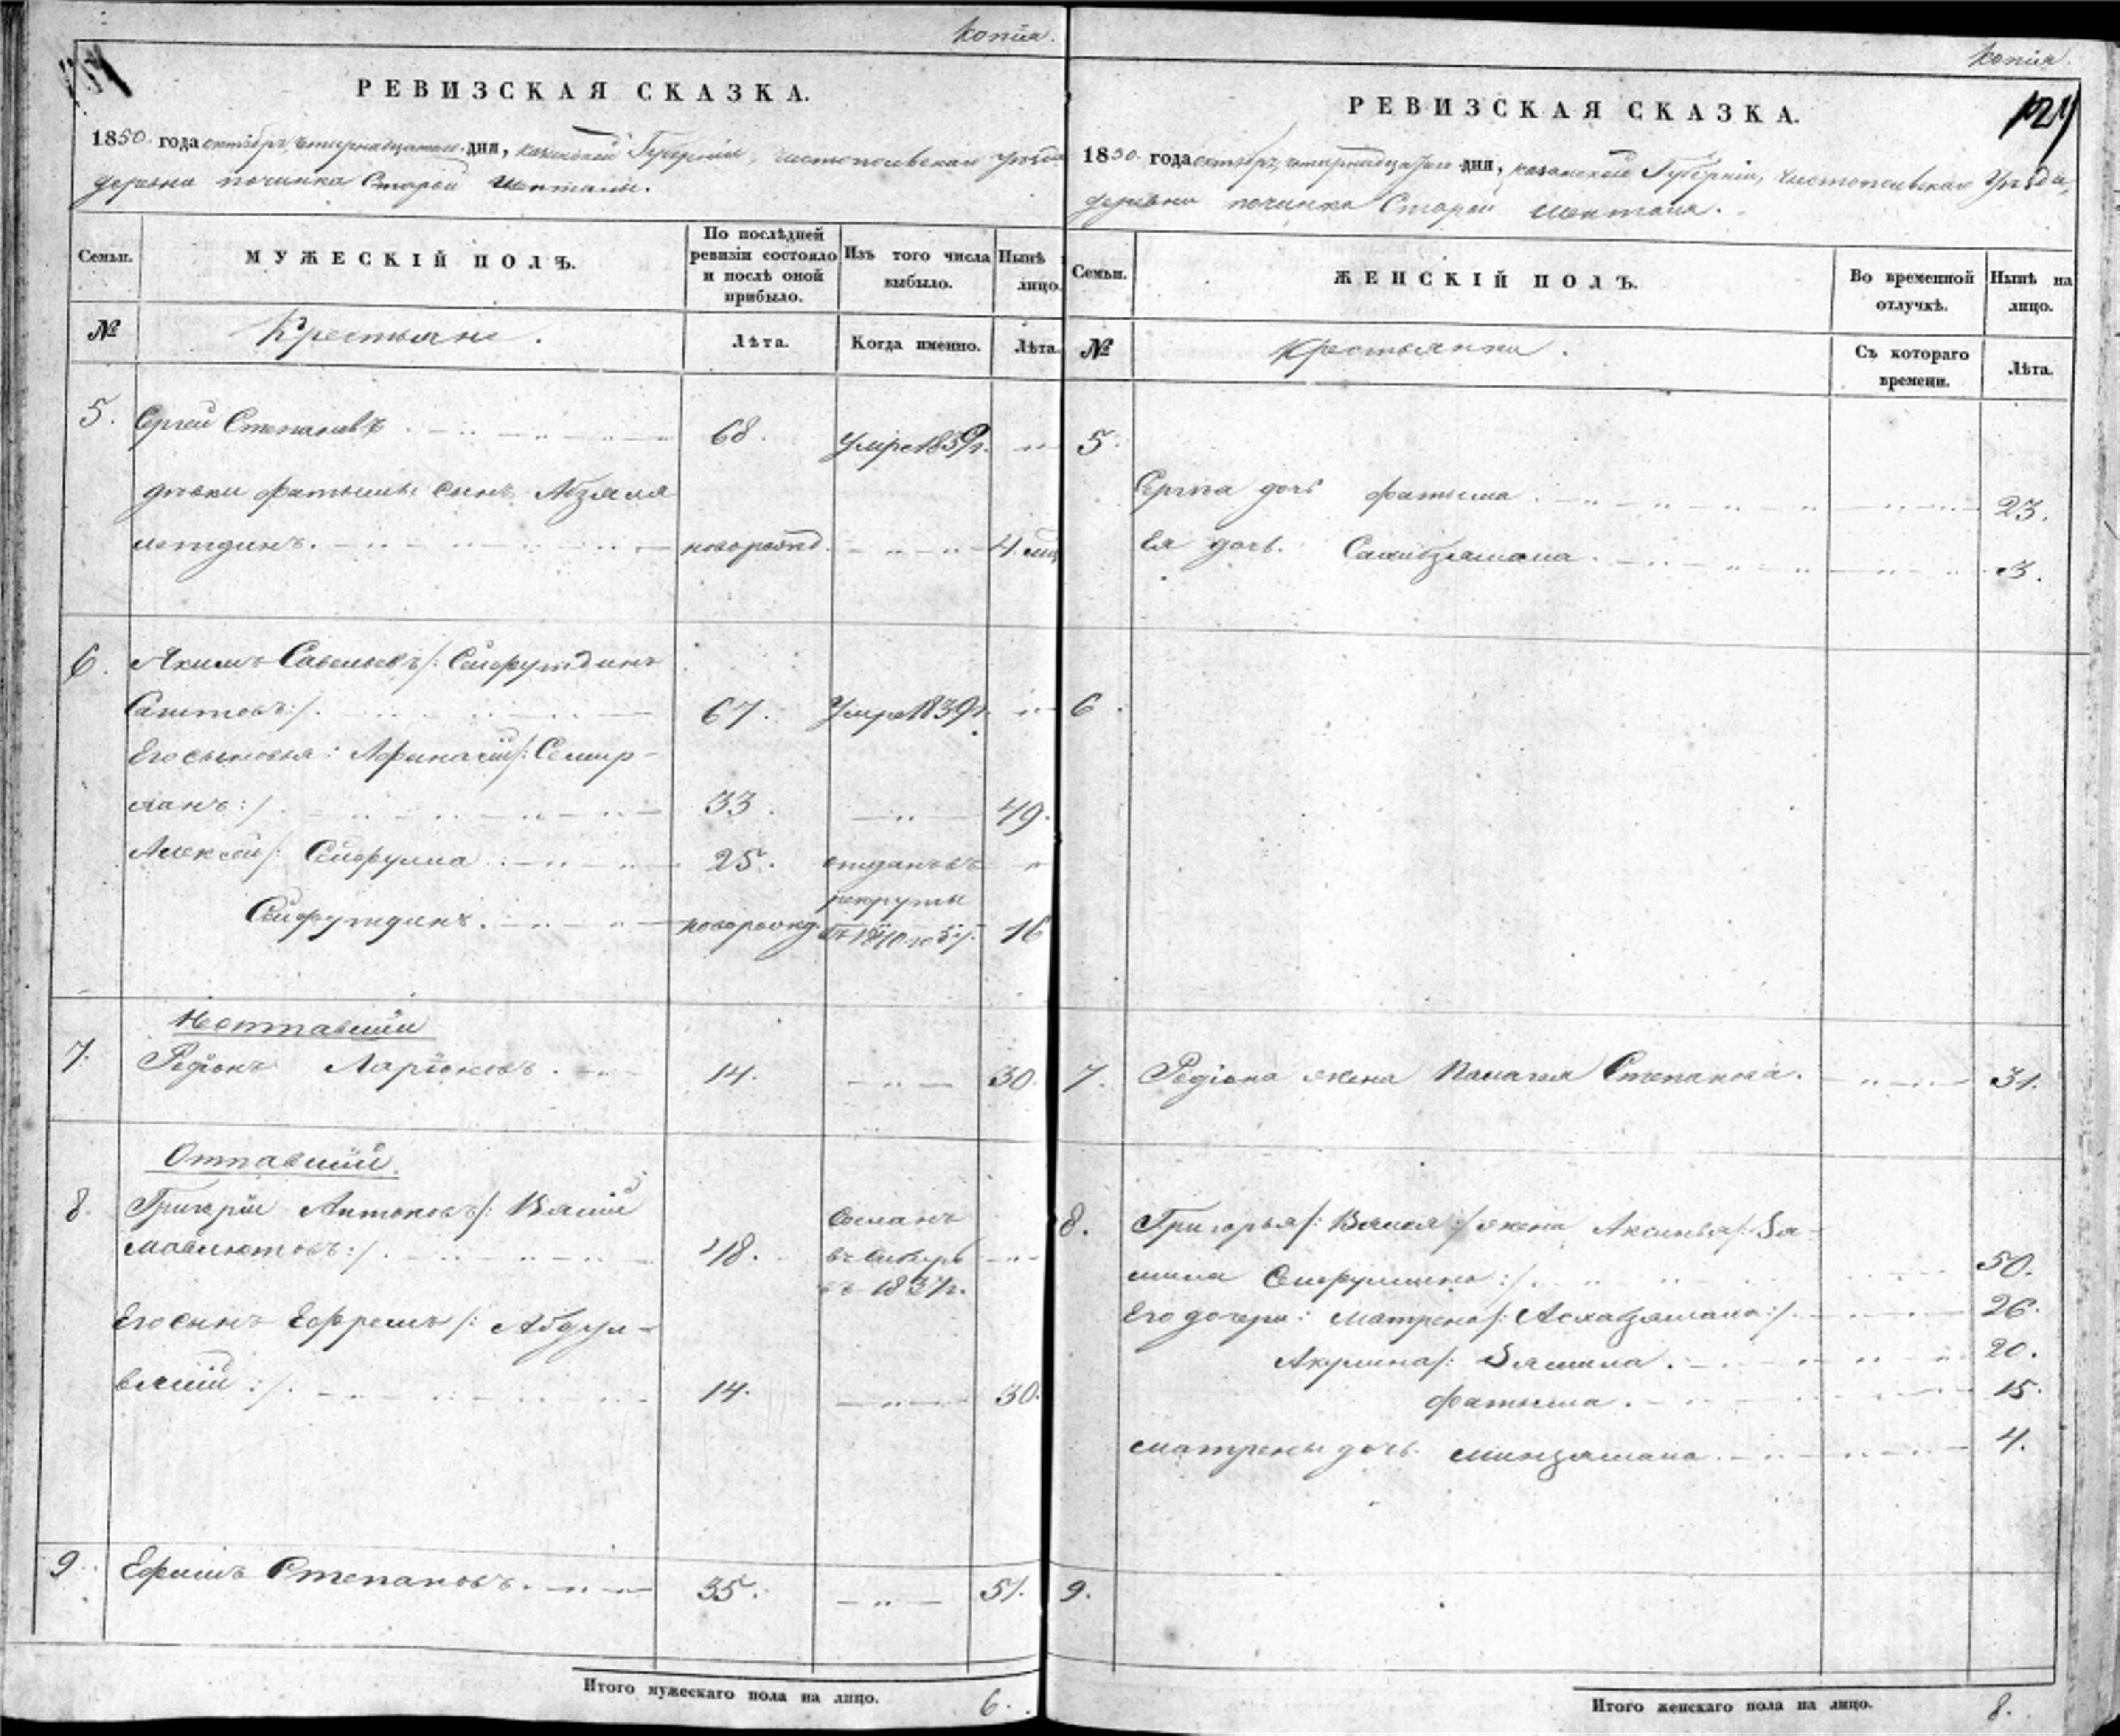 копія.
РЕВИЗСКАЯ СКАЗКА.
1850 года октября четырнадцатаго дня, казанской Губерніи, чистопольскаго уѣзда
деревни починка Старой Шентали.
Семьи.
МУЖЕСКІЙ ПОЛЪ.
По послѣдней
ревизіи состояло
и послѣ оной
прибыло.
Изъ того числа
выбыло.
Нынѣ
лицо.
№
Крестьяне.
Лѣта.
Когда именно.
Лѣта.
5. Сергей Степановъ 68. Умре 1839 г.
дѣвки фатымы сынъ Абзяля
метдинъ. новорожд. 4. мц
6. Акимъ Савельевъ /: Сейфутдинъ
Саитовъ :/. 67. Умре 1839 г.
Его сыновья: Афанасій /: Семир-
ханъ :/. 33. 49.
Алексей /: Сейфулла 25. отданъ въ
рекруты
Сейфутдинъ. новорожд. въ 1840 году. 16
Неотпавшій
7. Родіонъ Ларіоновъ. 14. 30.
Отпавшій.
8. Григорій Антоновъ /: Вялій
мавлютовъ :/. 48. Сосланъ
въ Сибирь
въ 1837 г.
Его сынъ Ефремъ /: Абдул-
вялій :/. 14. 30.
9. Ефимъ Степановъ. 35. 51.
Итого мужескаго пола на лицо. 6.
копія.
РЕВИЗСКАЯ СКАЗКА.
1850 года октября четырнадцатаго дня, казанской Губерніи, чистопольскаго Уѣзда,
деревни починка Старой Шентали.
Семьи.
ЖЕНСКІЙ ПОЛЪ.
Во временной
отлучкѣ.
Нынѣ на
лицо.
№
Крестьянки.
Съ котораго
времени.
Лѣта.
5.
Сергѣя дочь фатыма. 23.
Ея дочь. Сахибзямала. 3.
6.
7. Родіона жена Палагея Степанова. 31.
8. Григорья /: Вялія :/ жена Аксинья /: Зя-
мила Сейфуллина :/. 50.
Его дочери: Матрена /: Асхабзямала :/. 26.
Акулина /: Зямила. 20.
фатыма. 15.
матрены дочь. минзямала. 4.
9.
Итого женскаго пола на лицо. 8.